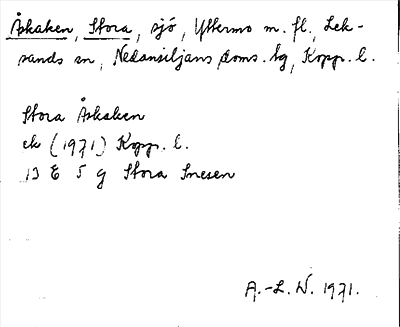 Åskaken, Stora, sjö, Yttermo m. fl., Lek-
sands sn, Nedansiljans doms. tg, Kopp. l.
Stora Åskaken
ek (1971) Kopp. l.
13 E 5 g Stora Snesen
A.-L. W. 1971.